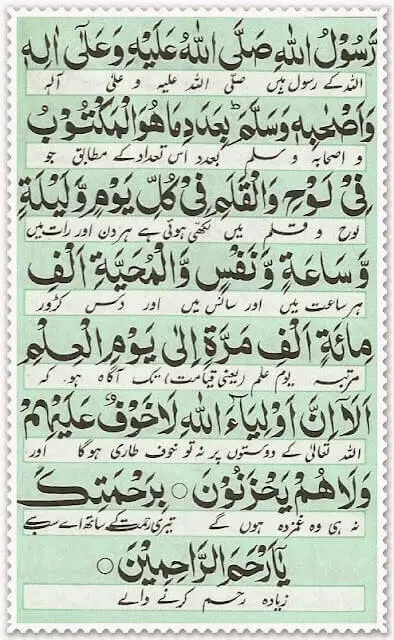 رَّسُوْلُ اللهِ صَلَّى اللهُ عَلَيْهِ وَعَلٰٓى اٰلِهٖ
اللہ کے رسول ہیں صلّی اللہ علیہ و علیٰ آلہٖ
وَاَصْحَابِهٖ وَسَلَّمَ ط بِعَدَدِ مَا هُوَ الْمَكْتُوْبُ
و اصحابہ و سلم بعدد اس تعداد کے مطابق جو
فِيْ لَوْحِ وَالْقَلَمِ فِيْ كُلِّ يَوْمٍ وَّلَيْلَةٍ
لوح و قلم میں لکھی ہوئی ہے ہر دن اور رات میں
وَّسَاعَةٍ وَّنَفْسٍ وَّالْمُحَيَّةِ اَلْفَ
ہر ساعت میں اور سانس میں اور دس کڑور
مِائَةِ اَلْفِ مَرَّةٍ اِلٰى يَوْمِ الْعِلْمِ
مرتبہ یوم علم (یعنی قیامت) تک آگاہ ہو کہ
اَلَآ اِنَّ اَوْلِيَآءَ اللهِ لَاخَوْفٌ عَلَيْهِمْ
اللہ تعالیٰ کے دوستوں پر نہ تو خوف طاری ہو گا اور
وَلَاهُمْ يَحْزَنُوْنَ ○ بِرَحْمَتِكَ
نہ ہی وہ غمزدہ ہوں گے تیری رحمت کے ساتھ اے سب سے
يَآاَرْحَمَ الرَّاحِمِيْنَ ○
زیادہ رحم کرنے والے